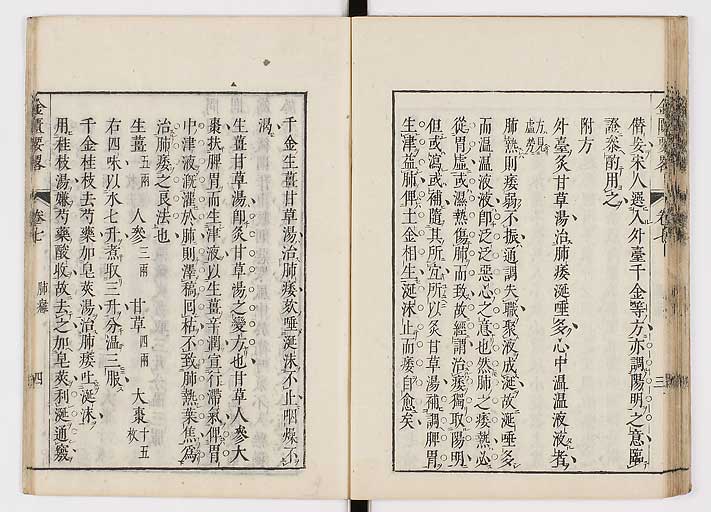 僭妄宋人選入外臺千金等方亦調陽明之意臨
證參酌用之
附方
外臺炙甘草湯治肺痿涎唾多心中温温液液者
方見
虛勞
肺熱則痿弱不振通調失職聚液成涎故涎唾多
而温温液液即泛泛惡心之意也然肺之痿熱必
從胃虛或濕熱傷肺而致故經謂治痿獨取陽明
但或瀉或補隨其所宜所以炙甘草湯補調脾胃
生津益肺俾土金相生涎沫止而痿自愈矣
金匱要略
卷七
三
千金生薑甘草湯治肺痿欬唾涎沫不止咽燥不
渴
生薑甘草湯即炙甘草湯之變方也甘草人參大
棗扶脾胃而生津液以生薑辛潤宣行滯氣俾胃
中津液溉灌於肺則澤槁回枯不致肺熱葉焦為
治肺痿之良法也
生薑五兩 人參三兩 甘草四兩 大棗十五枚
右四味以水七升煮取三升分温三服
千金桂枝去芍藥加皂莢湯治肺痿吐涎沫
用桂枝湯嫌芍藥酸收故去之加皂莢利涎通竅
金匱要略
卷七
肺癰
四